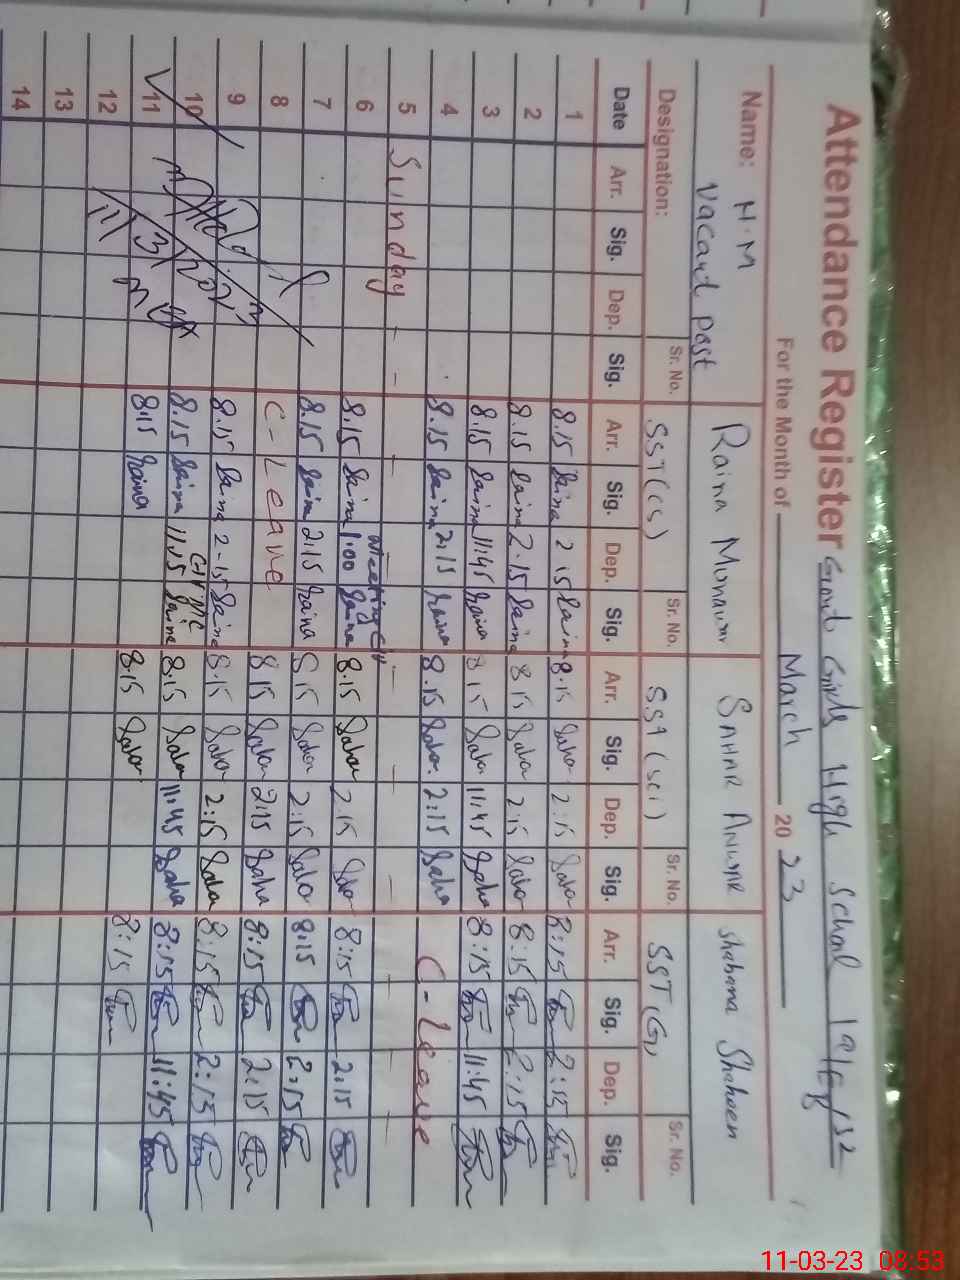 Attendance Register Govt Girls High School 19/
For the Month of March 20 23
Name: H.M Raina Monawar SAHAR ANWAR Shabana Shaheen
Vacant post
Designation: Sr. No. SST(CS) Sr. No. SST (Sci) Sr. No. SST(G) Sr. No.
Date Arr. Sig. Dep. Sig. Arr. Sig. Dep. Sig. Arr. Sig. Dep. Sig. Arr. Sig. Dep. Sig.
1 8.15 Raina 2.15 Raina 8.15 Sahar 2.15 Sahar 8:15 2:15
2 8.15 Raina 2.15 Raina 8.15 Sahar 2.15 Sahar 8:15 2:15
3 8.15 Raina 11:45 Raina 8.15 Sahar 11:45 Sahar 8:15 11:45
4 8.15 Raina 2:15 Raina 8.15 Sahar 2:15 Sahar C-Leave
5 Sunday - - - - - - -
Meeting
6 8.15 Raina 1.00 Raina 8.15 Sahar 2.15 Sahar 8:15 2:15
7 8.15 Raina 2:15 Raina 8.15 Sahar 2:15 Sahar 8:15 2:15
8 C-Leave 8.15 Sahar 2:15 Sahar 8:15 2:15
9 8.15 Raina 2-15 Raina 8.15 Sahar 2:15 Sahar 8:15 2:15
10 8.15 Raina 11.15 Raina 8.15 Sahar 11:45 Sahar 8:15 11:45
11 8.15 Raina 8.15 Sahar 8:15
12
13
14
11-03-23 08:53